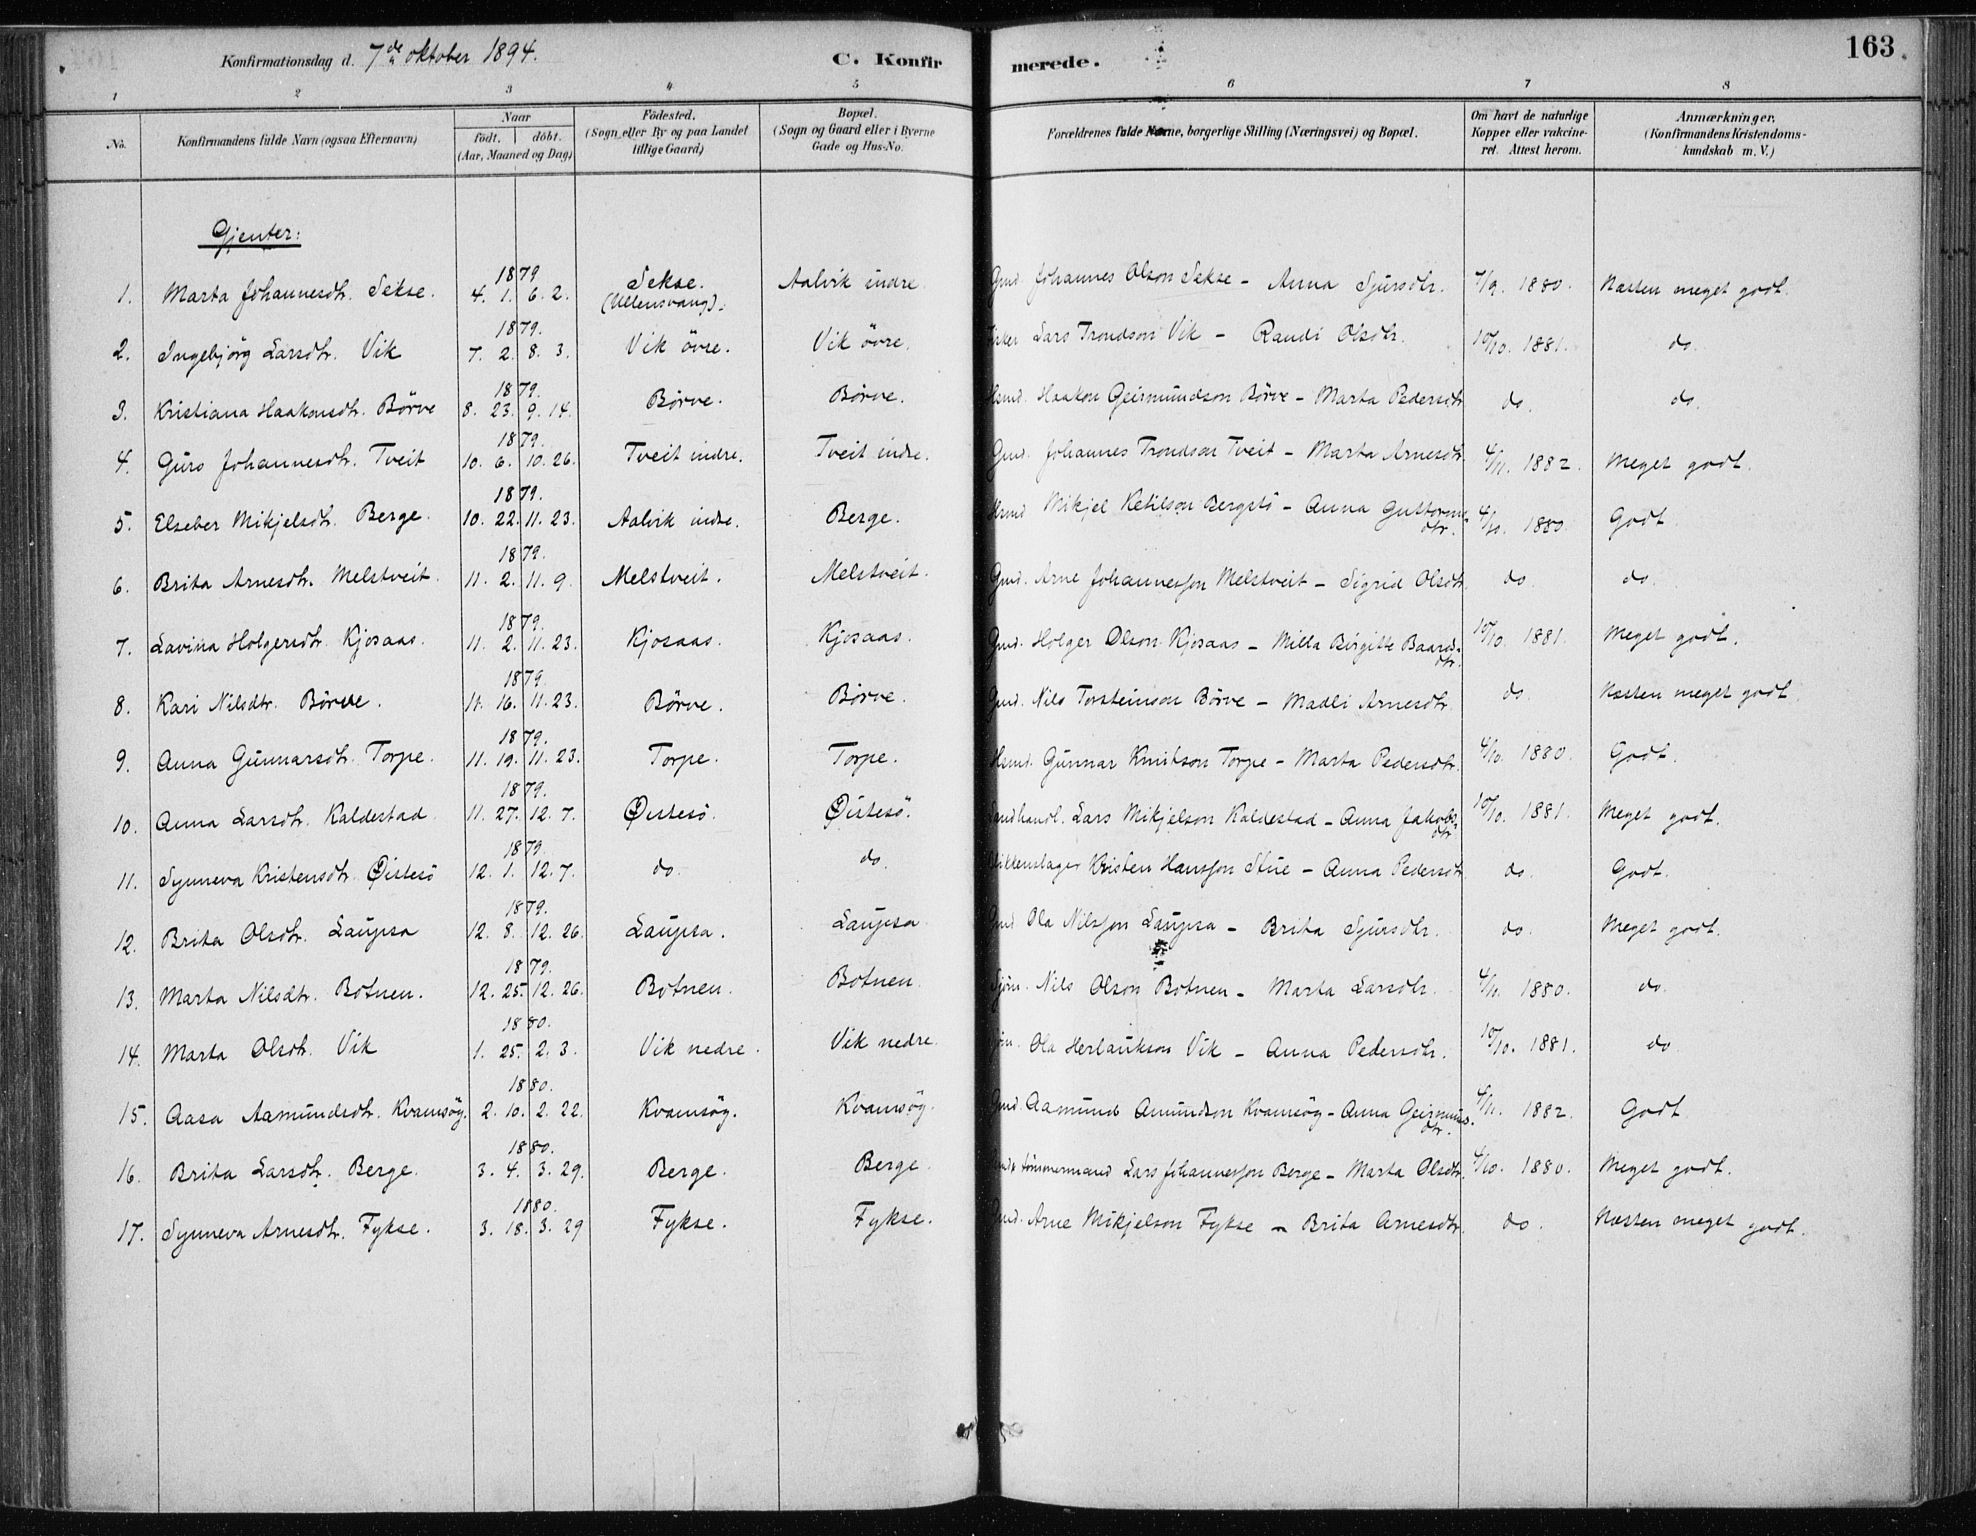 Konfirmationsdag d. 7de oktober 1894.
C. Konfirmerede.
163
1 2 3 4 5 6 7 8
No. Konfirmandens fulde Navn (ogsaa Efternavn) Naar födt. döbt. (Aar, Maaned og Dag) Födested. (Sogn eller By og paa Landet tillige Gaard) Bopæl. (Sogn og Gaard eller i Byerne Gade og Hus-No. Forældrenes fulde Navne, borgerlige Stilling (Næringsvei) og Bopæl. Om havt de naturlige Kopper eller vakcineret. Attest herom. Anmærkninger. (Konfirmandens Kristendomskundskab m. V.)
Gjenter:
1. Marta Johannesdtr. Sekse. 1879 4. 1. 6. 2. Sekse. (Ullensvang). Aalvik indre. Gmd. Johannes Olson Sekse - Anna Sjursdtr. 7/9. 1880. Næsten meget godt.
2. Ingebjörg Larsdtr. Vik 1879. 7. 2. 8. 3. Vik övre. Vik övre. Lars Trondson Vik - Randi Olsdtr. 10/10. 1881. do.
3. Kristiana Haakonsdtr. Börve 1879. 8. 23. 9. 14. Börve. Börve. Hsmd. Haakon Geirmundson Börve - Marta Pedersdtr. do. do.
4. Guro Johannesdtr. Tveit 1879. 10. 6. 10. 26. Tveit indre. Tveit indre. Gmd. Johannes Trondson Tveit - Marta Arnesdtr. 4/11. 1882. Meget godt.
5. Elseber Mikjelsdtr. Berge. 1879. 10. 22. 11. 23. Aalvik indre. Berge. Hsmd Mikjel Ketilson Bergstö - Anna Guttormsdtr. 4/10. 1880. Godt.
6. Brita Arnesdtr. Melstveit. 1879. 11. 2. 11. 9. Melstveit. Melstveit. Gmd. Arne Johannesson Melstveit - Sigrid Olsdtr. do. do.
7. Lavina Holgersdtr. Kjosaas. 1879. 11. 2. 11. 23. Kjosaas. Kjosaas. Gmd. Holger Olson Kjosaas - Milla Birgitte Baardsdtr. 10/10. 1881. Meget godt.
8. Kari Nilsdtr. Börve. 1879. 11. 16. 11. 23. Börve. Börve. Gmd. Nils Torsteinson Börve - Madli Arnesdtr. do. Næsten meget godt.
9. Anna Gunnarsdtr. Torpe. 1879. 11. 19. 11. 23. Torpe. Torpe. Hsmd. Gunnar Knutson Torpe - Marta Pedersdtr. 4/10. 1880. Godt.
10. Anna Larsdtr. Kaldestad. 1879. 11. 27. 12. 7. Östesö. Östesö. Landhandl. Lars Mikjelson Kaldestad - Anna Jakobsdtr. 10/10. 1881. Meget godt.
11. Synneva Kristensdtr. Östesö 1879. 12. 1. 12. 7. do. do. Blikkenslager Kristen Hansson Stue - Anna Pedersdtr do. Godt.
12. Brita Olsdtr. Laupsa 1879. 12. 8. 12. 26. Laupsa. Laupsa. Gmd Ola Nilsson Laupsa - Brita Sjursdtr. do. Meget godt.
13. Marta Nilsdtr. Botnen. 1879. 12. 25. 12. 26. Botnen. Botnen. Sjöm. Nils Olson Botnen - Marta Larsdtr. 4/11. 1880. do.
14. Marta Olsdtr. Vik 1880. 1. 25. 2. 3. Vik nedre. Vik nedre. Ola Herlaukson Vik - Anna Pedersdtr. 10/10. 1881. do
15. Aasa Aamundsdtr. Kvamsög. 1880. 2. 10. 2. 22. Kvamsög. Kvamsög. Gmd. Aamund Amundson Kvamsög - Anna Geirmunsdtr. 4/11. 1882. Godt.
16. Brita Larsdtr. Berge. 1880. 3. 4. 3. 29. Berge. Berge. tömmermand Lars Johannesson Berge - Marta Olsdtr. 4/10. 1880. Meget godt.
17. Synneva Arnesdtr. Fykse. 1880. 3. 18. 3. 29 Fykse. Fykse. Gmd. Arne Mikjelson Fykse - Brita Arnesdtr. do. Næsten meget godt.